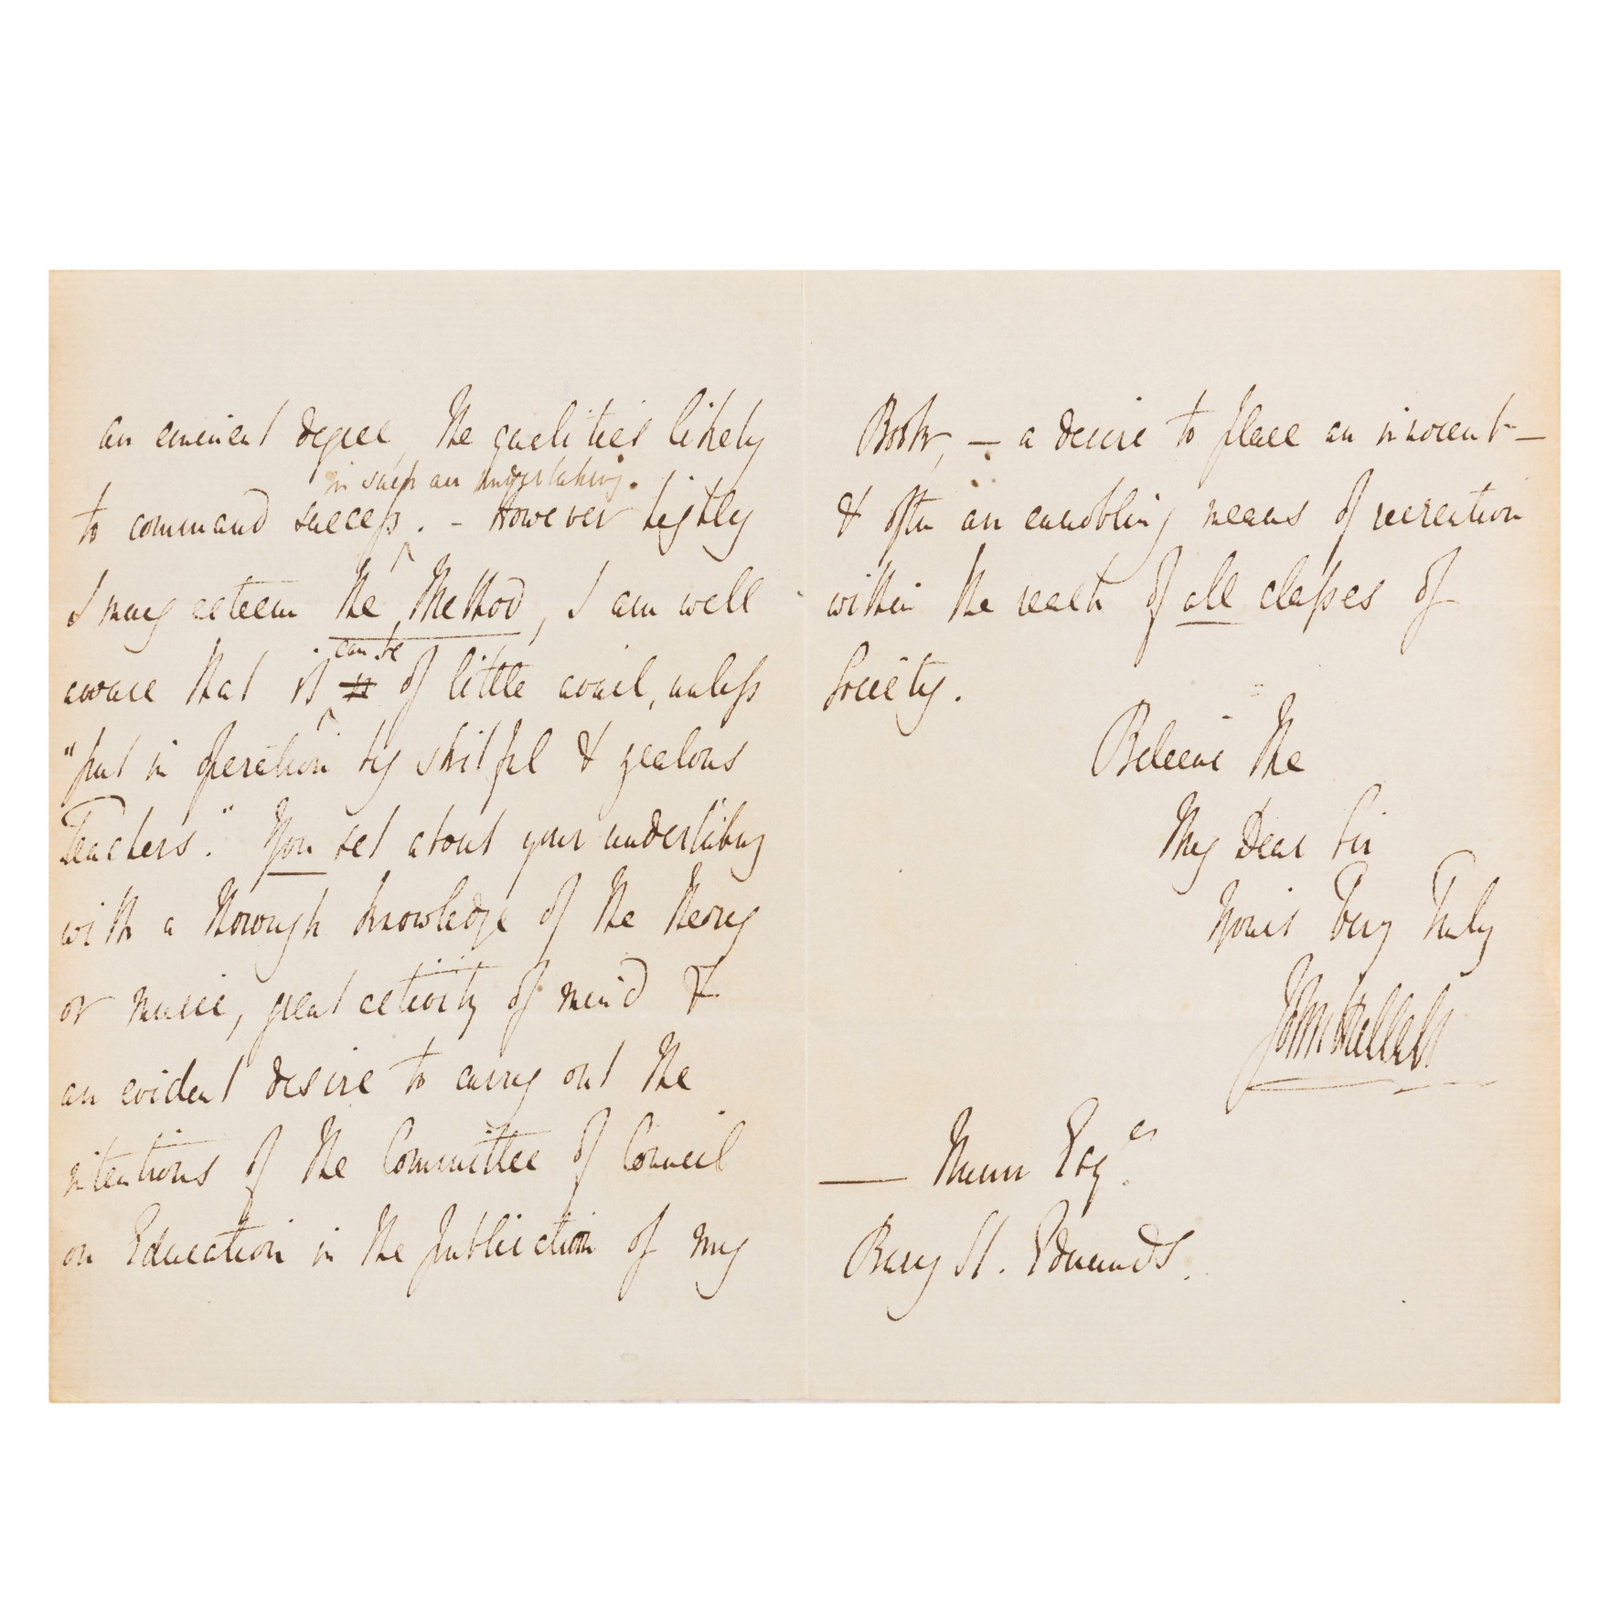 an eminent degree, the qualities likely
in such an undertaking.
to command success. - However highly
I may esteem the Method, I am well
can be
aware that it is of little avail, unless
"put in operation by skilful & zealous
Teachers." You set about your undertaking
with a thorough knowledge of the theory
of music, great activity of mind &
an evident desire to carry out the
intentions of the Committee of Council
on Education in the publication of my
Books, - a desire to place an innocent -
& often an ennobling means of recreation
within the reach of all classes of
Society.
Believe Me
My Dear Sir
Yours Very Truly
John Hullah
— Nunn Esqre.
Bury St. Edmunds.